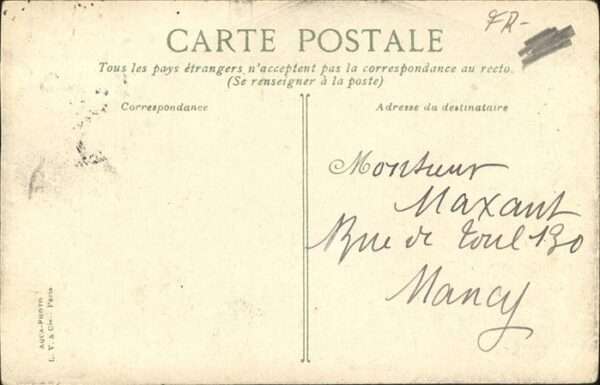 FR-
CARTE POSTALE
Tous les pays étrangers n'acceptent pas la correspondance au recto.
(Se renseigner à la poste)
Correspondance
Adresse du destinataire
Monsieur
Maxant
Rue de Toul 130
Nancy
AQUA-PHOTO
L. V. & Cie. Paris